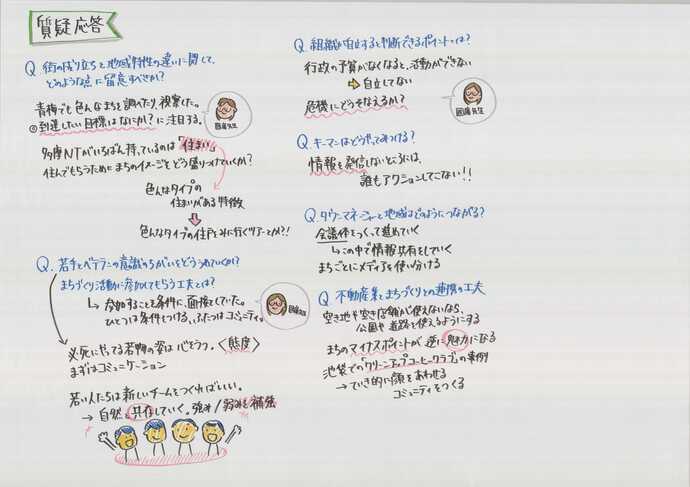 質疑応答
Q. 街の成り立ちと地域特性の違いに関して、
どのような点に留意すべきか?
青梅でも色んなまちを調べたり、視察した。
◎到達したい目標はなにか?に注目する。
國廣先生
多摩NTがいちばん持っているのは「住まい」
住んでもらうためにまちのイメージをどう盛りつけていくか?
色んなタイプの
住まいがある特徴
色んなタイプの住戸をみに行くツアーとか?!
Q. 若手とベテランの意識のちがいをどううめていくか?
まちづくり活動に参加してもらう工夫とは?
↳ 参加することを条件に、面接していた。
ひとつは条件をつける、ふたつはコミュニティ。
國廣先生
必死にやってる若門の姿は心をうつ。〈態度〉
まずはコミュニケーション
若い人たちは新しいチームをつくればいい。
→ 自然と共存していく。強み/弱みを補強
Q. 組織が自立すると判断できるポイントは?
行政の予算がなくなると、活動ができない
⇨ 自立してない
危機にどうそなえるか?
國廣先生
Q. キーマンはどうやってみつける?
情報を発信しないところには、
誰もアクションしてこない!!
Q. タウンマネージャーと地域はどのようにつながる?
会議体をつくって進めていく
↳この中で情報共有をしていく
まちごとにメディアを使い分ける
Q. 不動産業とまちづくりとの連携の工夫
空き地や空き店舗が使えないなら、
公園や道路を使えるようにする
まちのマイナスポイントが逆に魅力になる
池袋での「クリーンアップコーヒークラブ」の事例
→ ていき的に顔をあわせる
コミュニティをつくる